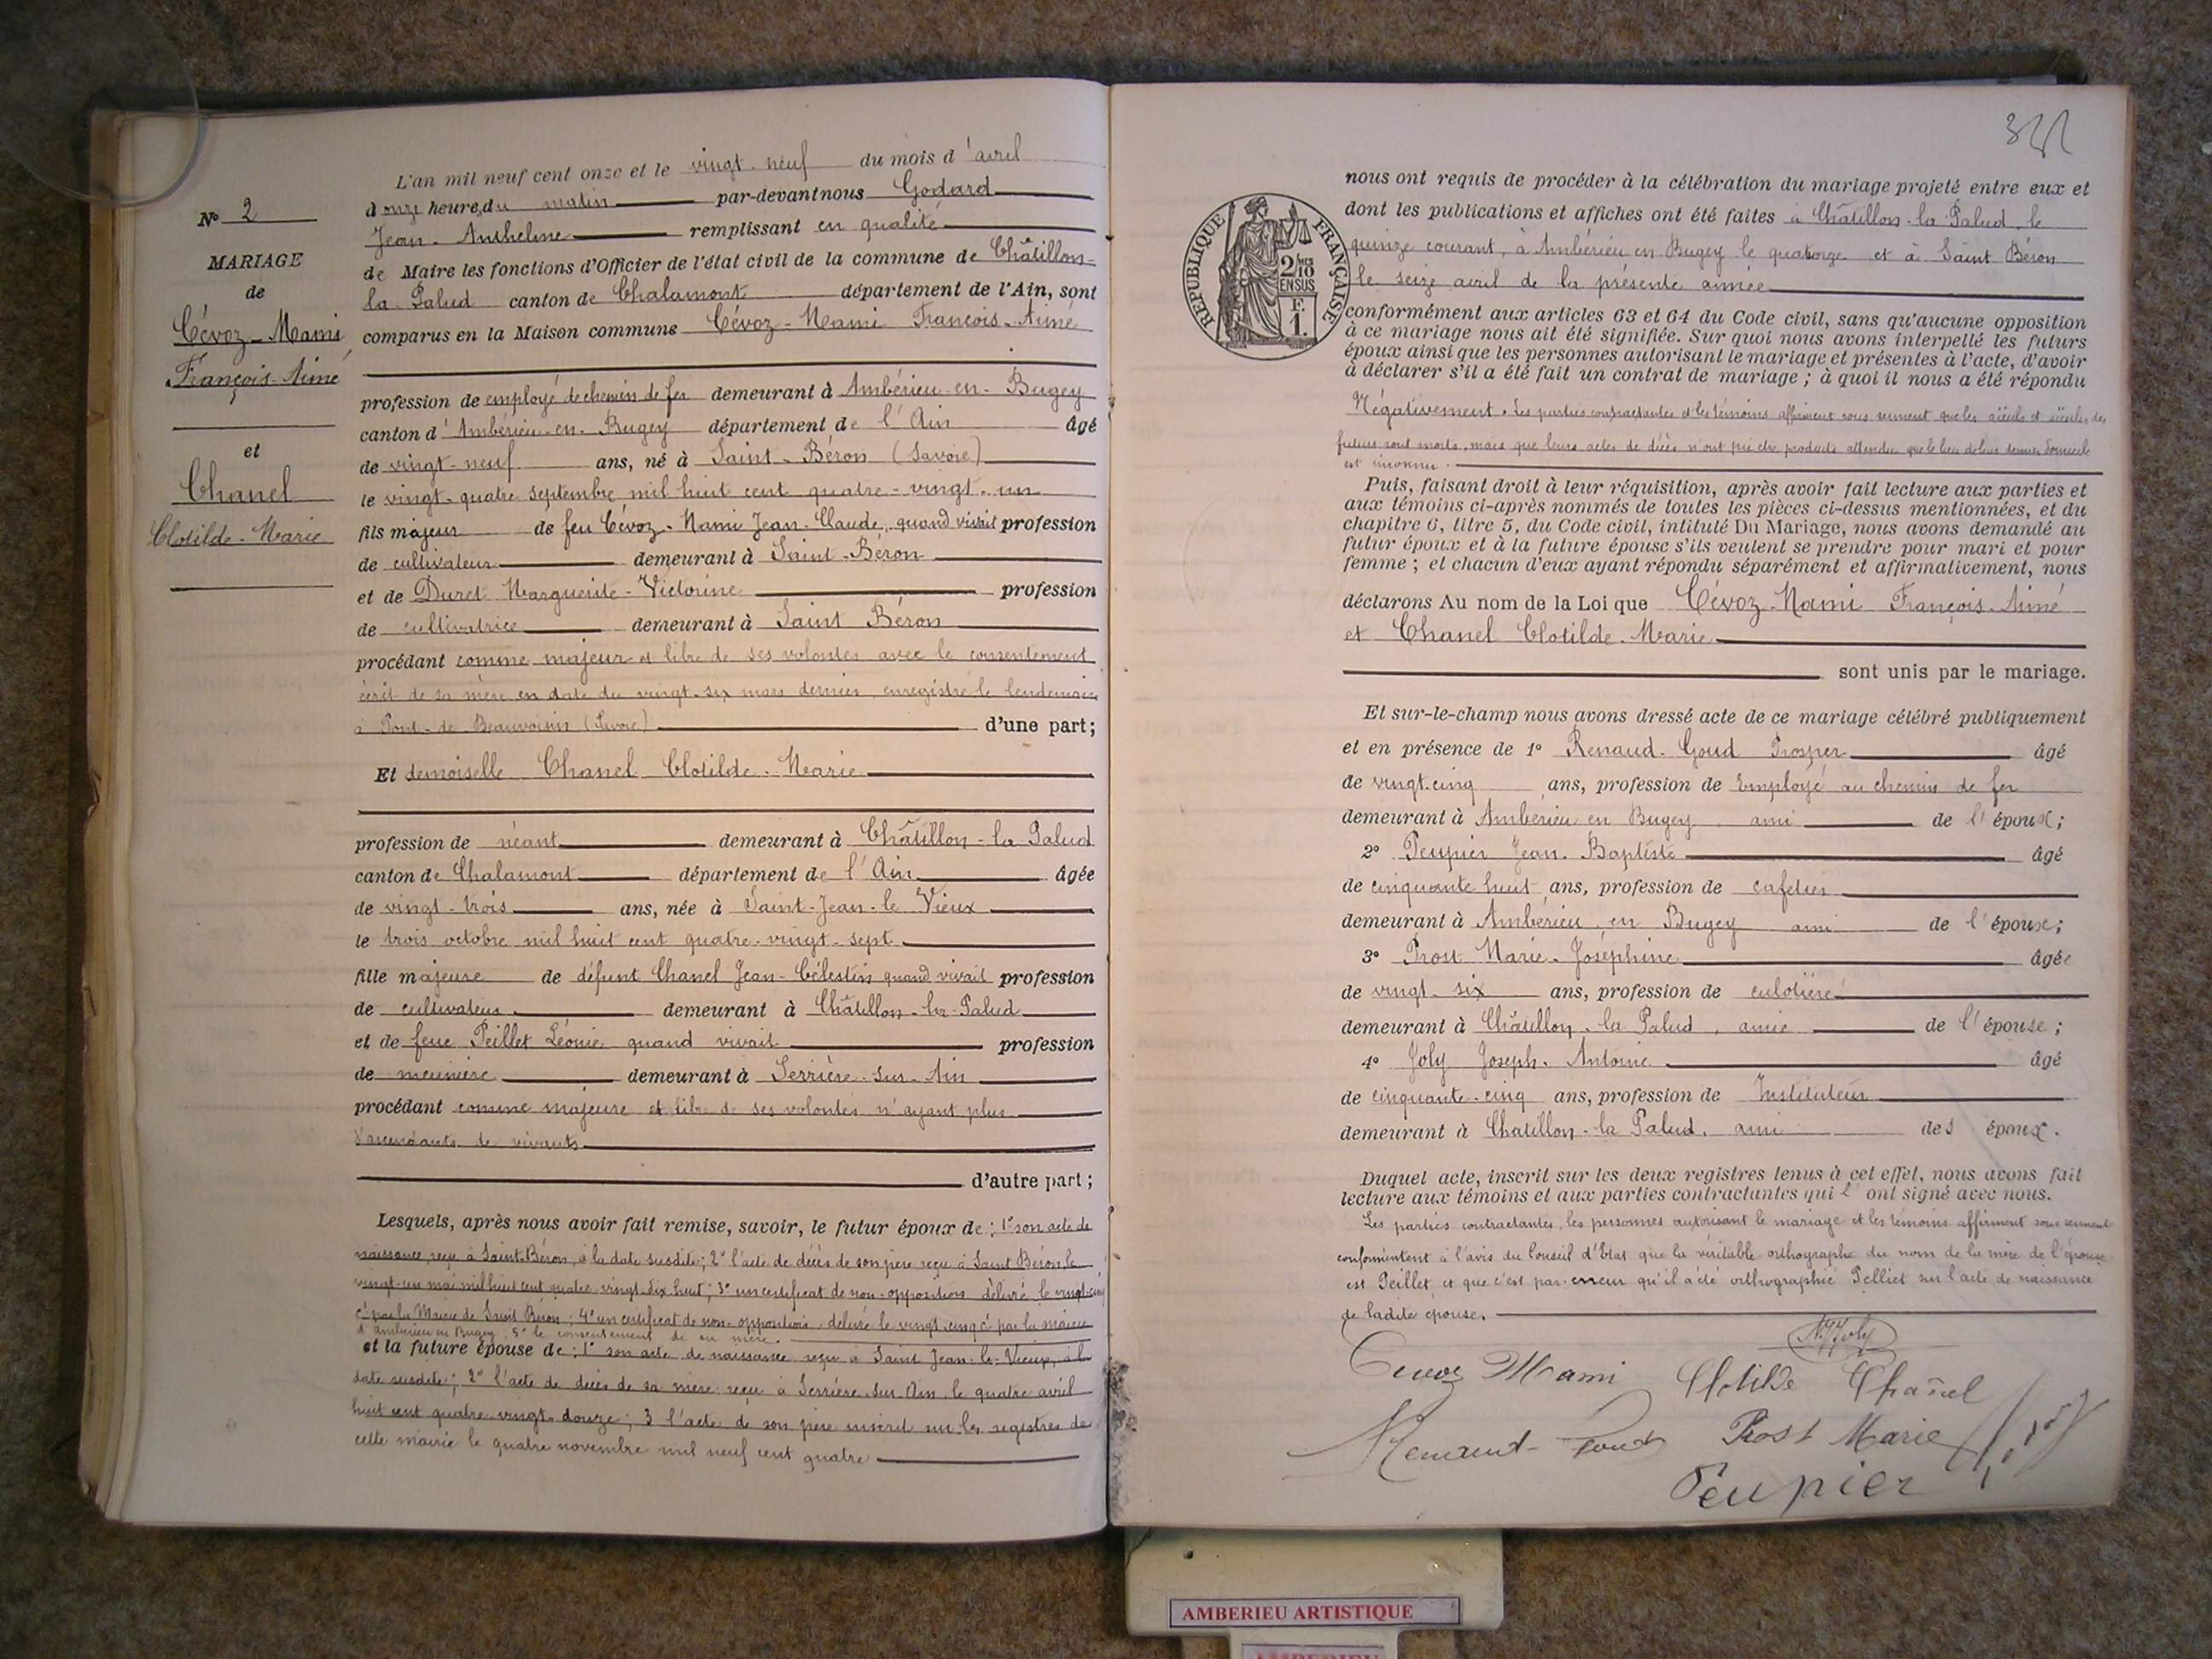 L'an mil neuf cent onze et le vingt-neuf du mois d'avril
à onze heures du matin par-devant nous Godard
Jean-Anthelme remplissant en qualité
de Maire les fonctions d'Officier de l'état civil de la commune de Châtillon-
la Palud canton de Chalamont département de l'Ain, sont
comparus en la Maison commune Cévoz-Mami François-Aimé
profession de employé de chemin de fer demeurant à Ambérieu-en-Bugey
canton d'Ambérieu-en-Bugey département de l'Ain âgé
de vingt-neuf ans, né à Saint-Béron (Savoie)
le vingt-quatre septembre mil huit cent quatre-vingt-un
fils majeur de feu Cévoz-Mami Jean-Claude, quand vivait profession
de cultivateur demeurant à Saint-Béron
et de Duret Marguerite-Victorine profession
de cultivatrice demeurant à Saint Béron
procédant comme majeur et libre de ses volontés avec le consentement
écrit de sa mère en date du vingt-six mars dernier, enregistré le lendemain
à Pont-de Beauvoisin (Savoie) d'une part;
Et demoiselle Chanel Clotilde-Marie
profession de néant demeurant à Châtillon-la Palud
canton de Chalamont département de l'Ain âgée
de vingt-trois ans, née à Saint-Jean-le Vieux
le trois octobre mil huit cent quatre-vingt-sept
fille majeure de défunt Chanel Jean-Célestin quand vivait profession
de cultivateur demeurant à Châtillon-la-Palud
et de feue Peillet Léonie quand vivait profession
de meunière demeurant à Serrière-sur-Ain
procédant comme majeure et libre de ses volontés n'ayant plus
d'ascendants de vivants
d'autre part;
Lesquels, après nous avoir fait remise, savoir, le futur époux de: 1° son acte de
naissance reçu à Saint-Béron, à la date susdite; 2° l'acte de décès de son père reçu à Saint Béron, le
vingt-un mai mil huit cent quatre-vingt-dix huit; 3° un certificat de non-opposition délivré le vingt-cinq
ct par la Mairie de Saint Béron; 4° un certificat de non-opposition délivré le vingt-cinq ct par la mairie
d'Ambérieu en Bugey, 5° le consentement de sa mère.
et la future épouse de: 1° son acte de naissance reçu à Saint Jean-le-Vieux, à la
date susdite; 2° l'acte de décès de sa mère reçu à Serrière-sur-Ain, le quatre avril
huit cent quatre-vingt-douze; 3 l'acte de son père inscrit sur les registres de
cette mairie le quatre novembre mil neuf cent quatre
N° 2
MARIAGE
de
Cévoz-Mami
François-Aimé
et
Chanel
Clotilde-Marie
nous ont requis de procéder à la célébration du mariage projeté entre eux et
dont les publications et affiches ont été faites à Châtillon-la-Palud, le
quinze courant, à Ambérieu en Bugey le quatorze et à Saint Béron
le seize avril de la présente année
RÉPUBLIQUE FRANÇAISE
2 MES
10
EN SUS
F.
1.
conformément aux articles 63 et 64 du Code civil, sans qu'aucune opposition
à ce mariage nous ait été signifiée. Sur quoi nous avons interpellé les futurs
époux ainsi que les personnes autorisant le mariage et présentes à l'acte, d'avoir
à déclarer s'il a été fait un contrat de mariage; à quoi il nous a été répondu
Négativement. Les parties contractantes et les témoins affirment sous serment que les aïeuls et aïeules des
futurs sont morts, mais que leurs actes de décès n'ont pu être produits attendu que le lieu de leur dernier domicile
est inconnu.
Puis, faisant droit à leur réquisition, après avoir fait lecture aux parties et
aux témoins ci-après nommés de toutes les pièces ci-dessus mentionnées, et du
chapitre 6, titre 5, du Code civil, intitulé Du Mariage, nous avons demandé au
futur époux et à la future épouse s'ils veulent se prendre pour mari et pour
femme; et chacun d'eux ayant répondu séparément et affirmativement, nous
déclarons Au nom de la Loi que Cévoz-Mami François-Aimé
et Chanel Clotilde-Marie
sont unis par le mariage.
Et sur-le-champ nous avons dressé acte de ce mariage célébré publiquement
et en présence de 1° Renaud-Goud Prosper âgé
de vingt-cinq ans, profession de Employé au chemin de fer
demeurant à Ambérieu en Bugey, ami de l'époux;
2° Peupier Jean-Baptiste âgé
de cinquante huit ans, profession de cafetier
demeurant à Ambérieu en Bugey ami de l'époux;
3° Prost Marie-Joséphine âgée
de vingt-six ans, profession de culotière
demeurant à Châtillon-la Palud, amie de l'épouse;
4° Joly Joseph-Antoine âgé
de cinquante-cinq ans, profession de Instituteur
demeurant à Chatillon-la Palud, ami des époux.
Duquel acte, inscrit sur les deux registres tenus à cet effet, nous avons fait
lecture aux témoins et aux parties contractantes qui l'ont signé avec nous.
Les parties contractantes, les personnes autorisant le mariage et les témoins affirment sous serment
conformément à l'avis du Conseil d'Etat que la véritable orthographe du nom de la mère de l'épouse
est Peillet, et que c'est par erreur qu'il a été orthographié Pelliet sur l'acte de naissance
de ladite épouse.
Cevoz Mami Clotilde Chanel
Renaud-Goud Prost Marie
Peupier
AMBERIEU ARTISTIQUE
AMBERIEU